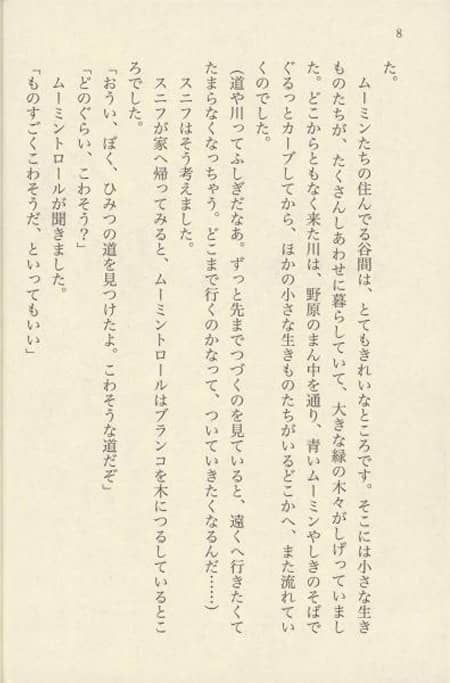 8
た。
ムーミンたちの住んでる谷間は、とてもきれいなところです。そこには小さな生き
ものたちが、たくさんしあわせに暮らしていて、大きな緑の木々がしげっていまし
た。どこからともなく来た川は、野原のまん中を通り、青いムーミンやしきのそばで
ぐるっとカーブしてから、ほかの小さな生きものたちがいるどこかへ、また流れてい
くのでした。
(道や川ってふしぎだなあ。ずっと先までつづくのを見ていると、遠くへ行きたくて
たまらなくなっちゃう。どこまで行くのかなって、ついていきたくなるんだ……)
スニフはそう考えました。
スニフが家へ帰ってみると、ムーミントロールはブランコを木につるしているとこ
ろでした。
「おうい、ぼく、ひみつの道を見つけたよ。こわそうな道だぞ」
「どのぐらい、こわそう?」
ムーミントロールが聞きました。
「ものすごくこわそうだ、といってもいい」